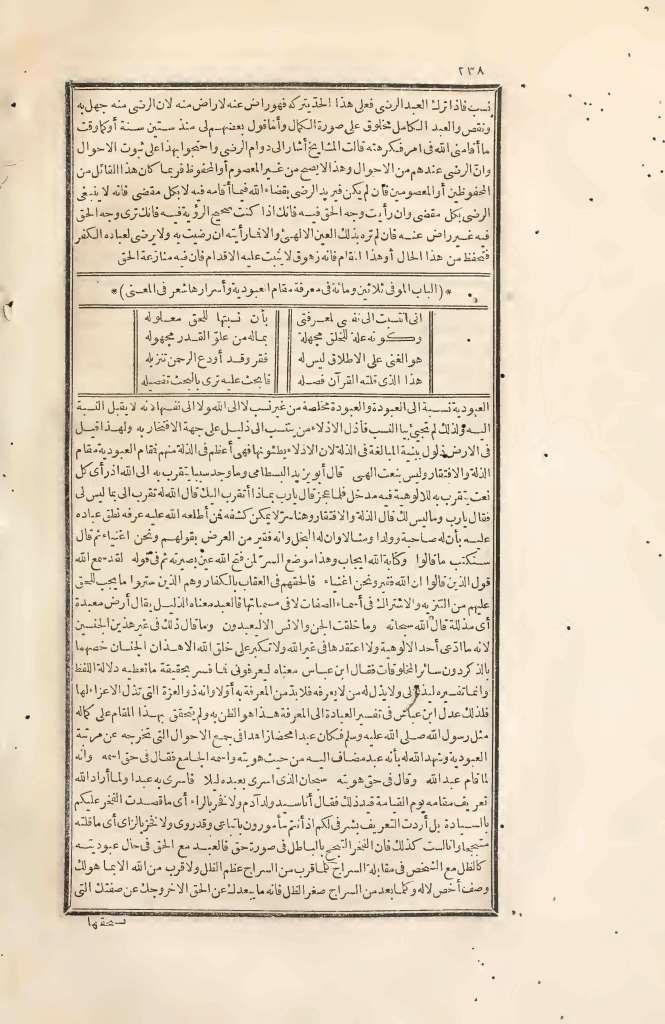 ٢٣٨
نسب فاذا ترك العبد الرضى فعلى هذا الحد يتركه فهو راض عنه لا راض منه لان الرضى منه جهل به
ونقص والعبد الكامل مخلوق على صورة الكمال وأما قول بعضهم لى منذ ستين سنة أو كما وقت
ما أقامنى الله فى أمر فكرهته قالت المشايخ أشار الى دوام الرضى واحتجوا بهذا على ثبوت الاحوال
وان الرضى عندهم من الاحوال وهذا لا يصح من غير المعصوم أو المحفوظ فربما كان هذا القائل من
المحفوظين أو المعصومين فان لم يكن فيريد الرضى بقضاء الله فيما أقامه فيه لا بكل مقضى فانه لا ينبغى
الرضى بكل مقضى وان رأيت وجه الحق فيه فانك اذا كنت صحيح الرؤية فيه فانك ترى وجه الحق
فيه غير راض عنه فان لم تره بذلك العين الالهى والا فما رأيته ان رضيت به ولا يرضى لعباده الكفر
فتحفظ من هذا الحال أو هذا المقام فانه زهوق لا يثبت عليه الاقدام فان فيه منازعة الحق
*(الباب الموفى ثلاثين ومائة فى معرفة مقام العبودية وأسرارها شعر فى المعنى)*
انى انتسبت الى نفسى لمعرفتى بأن نسبتها للحق معلوله
وكونه علة للخلق مجهلة بماله من علو القدر مجهوله
هو الغنى على الاطلاق ليس له فقر وقد أودع الرحمن تنزيله
هذا الذى قلته القرآن فصله فابحث عليه ترى بالبحث تفصيله
العبودية نسبة الى العبودة والعبودة مخلصة من غير نسب لا الى الله ولا الى نفسها لانه لا يقبل النسبة
اليه ولذلك لم تجئ بيا النسب فأذل الاذلاء من ينتسب الى ذليل على جهة الافتخار به ولهذا قيل
فى الارض ذلول ببنية المبالغة فى الذلة لان الاذلاء يطئونها فهى أعظم فى الذلة منهم فمقام العبودية مقام
الذلة والافتقار وليس بنعت الهى قال أبو يزيد البسطامى وما وجد سببا يتقرب به الى الله اذ رأى كل
نعت يتقرب به للالوهية فيه مدخل فلما عجز قال يارب بماذا أتقرب اليك قال الله له تقرب الى بما ليس لى
فقال يارب وما ليس لك قال الذلة والافتقار وهنا سر لا يمكن كشفه فمن أطلعه الله عليه عرفه نطق عباده
عليه بأن له صاحبة وولدا ومثلا وان له البخل وانه فقير من العرض بقولهم ونحن أغنياء ثم قال
سنكتب ما قالوا وكتابة الله ايجاب وهذا موضع السر لمن فتح الله عين بصيرته ثم فى قوله لقد سمع الله
قول الذين قالوا ان الله فقير ونحن اغنياء فالحقهم فى العقاب بالكفار وهم الذين ستروا ما يجب للحق
عليهم من التنزيه والاشتراك فى أسماء الصفات لا فى مسمياتها فالعبد معناه الذليل يقال أرض معبدة
أى مذللة قال الله سبحانه وما خلقت الجن والانس الا ليعبدون وما قال ذلك فى غير هذين الجنسين
لانه ما ادعى أحد الالوهية ولا اعتقدها فى غير الله ولا تكبر على خلق الله الا هذان الجنسان خصهما
بالذكر دون سائر المخلوقات فقال ابن عباس معناه ليعرفونى فما فسر بحقيقة ما تعطيه دلالة اللفظ
وانما تفسيره ليذلوا لى ولا يذل له من لا يعرفه فلا بد من المعرفة به أولا وانه ذو العزة التى تذل الاعزاء لها
فلذلك عدل ابن عباس فى تفسير العبادة الى المعرفة هذا هو الظن به ولم يتحقق بهذا المقام على كماله
مثل رسول الله صلى الله عليه وسلم فكان عبدا محضا زاهدا فى جميع الاحوال التى تخرجه عن مرتبة
العبودية وشهد الله له بأنه عبد مضاف اليه من حيث هويته واسمه الجامع فقال فى حق اسمه وانه
لما قام عبد الله وقال فى حق هويته سبحان الذى اسرى بعبده ليلا فاسرى به عبدا ولما أراد الله
تعريف مقامه يوم القيامة قيد ذلك فقال أنا سيد ولد آدم ولا فخر بالراء أى ما قصدت الفخر عليكم
بالسيادة بل أردت التعريف بشرى لكم اذ أنتم مأمورون باتباعى وقد روى ولا فخز بالزاى أى ما قلته
متبجحا وانا لست كذلك فان الفخز التبجح بالباطل فى صورة حق فالعبد مع الحق فى حال عبوديته
كالظل مع الشخص فى مقابلة السراج كلما قرب من السراج عظم الظل ولا قرب من الله الا بما هو لك
وصف أخص لا له وكلما بعد من السراج صغر الظل فانه ما يبعدك عن الحق الا خروجك عن صفتك التى
تستحقها